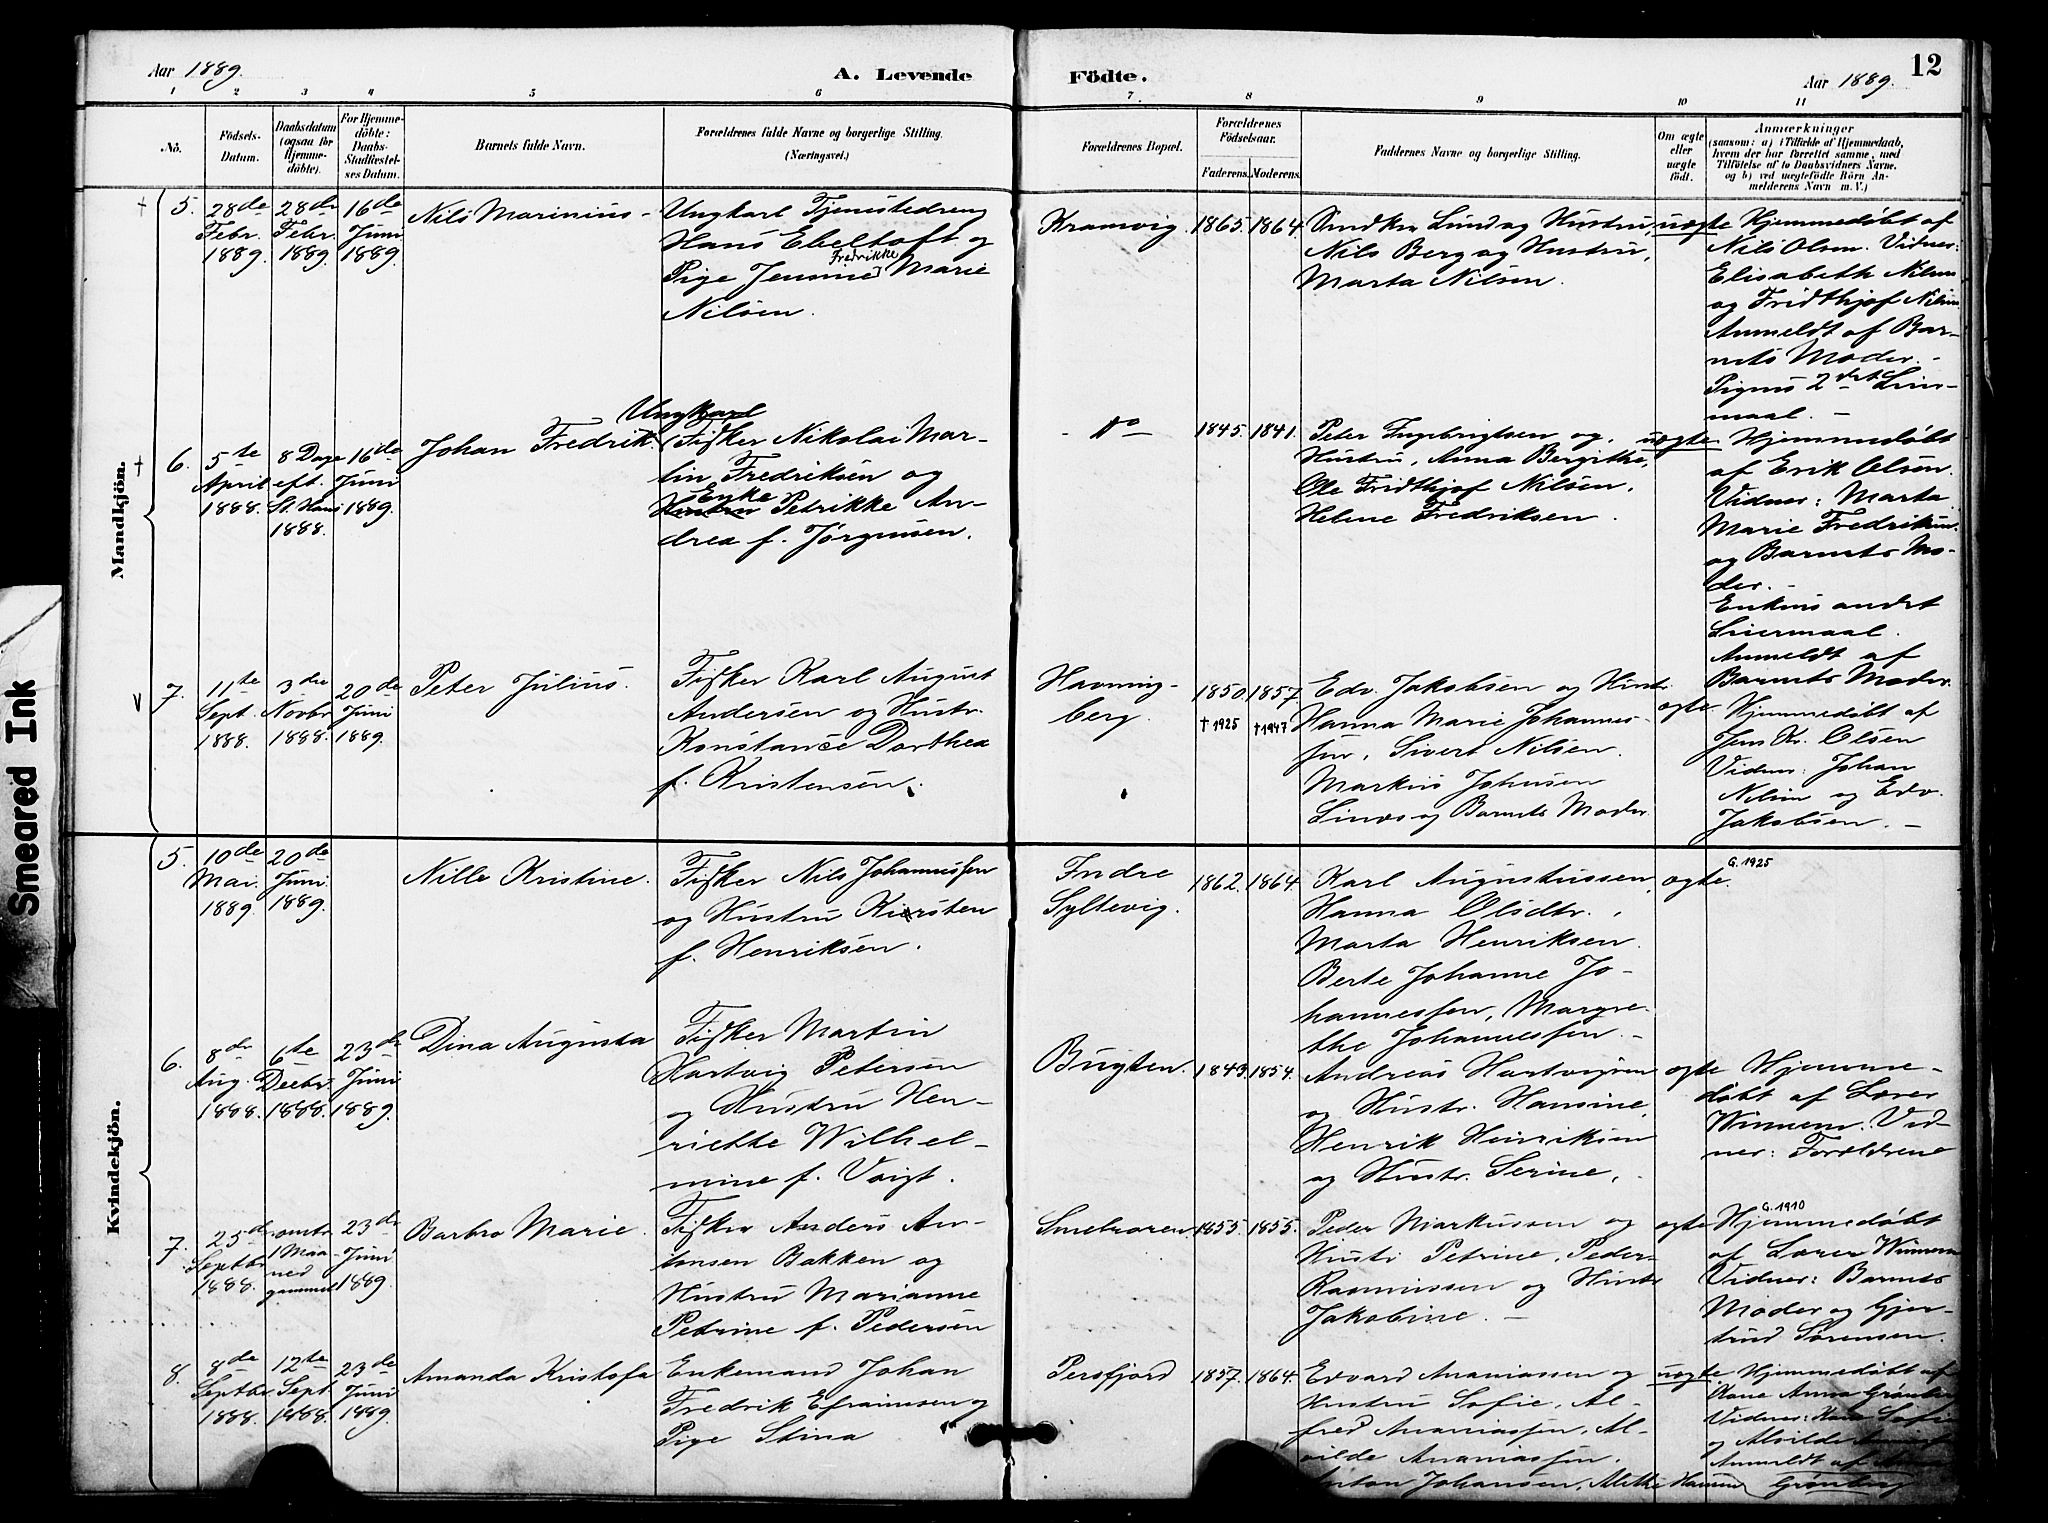 Aar 1889.
A. Levende
Födte.
Aar 1889.
12
1 2 3 4 5 6 7 8 9 10 11
No.
Födsels-
Datum.
Daabsdatum
(ogsaa for
Hjemme-
döbte).
For Hjemme-
döbte:
Daabs-
Stadfæstel-
ses Datum.
Barnets fulde Navn.
Forældrenes fulde Navne og borgerlige Stilling.
(Næringsvei.)
Forældrenes Bopæl.
Forældrenes
Födselsaar.
Faderens.
Moderens.
Faddernes Navne og borgerlige Stilling.
Om ægte
eller
uægte
födt.
Anmærkninger
(saasom: a) i Tilfælde af Hjemmedaab,
hvem der har forrettet samme, med
Tilföielse af to Daabsvidners Navne.
og b) ved uægtefödte Börn An-
melderens Navn m. V.)
Mandkjön.
5.
28de
Febr.
1889.
28de
Febr.
1889.
16de
Juni
1889.
Nils Marinius
Ungkarl Tjenestedreng
Hans Ebeltoft og
Fredrikke
Pige Jennie Marie
Nilsen.
Kramvig.
1865.
1864.
Lund og Hustru,
Nils Berg og Hustru,
Marta Nilsen.
uægte
Hjemmedøbt af
Nils Olsen. Vidner:
Elisabeth Nilsen
og Fridthjof Nilsen
Anmeldt af Bar-
nets Moder.
Pigens 2det Leier-
maal.
6.
5te
April
1888.
8 Dage
eft.
St. Hans
1888.
16de
Juni
1889.
Johan Fredrik.
Ungkarl
Fisker Nikolai Mar-
tin Fredriksen og
Enke
Hustru Petrikke An-
drea f. Jørgensen.
Do
1845.
1841.
Peter Ingebrigtsen og
Hustru, Anna Bergitha,
Ole Fridthjof Nilsen,
Helene Fredriksen.
uægte
Hjemmedøbt
af Erik Olsen.
Vidner: Marta
Marie Fredriksen
og Barnets Mo-
der.
Enkens andet
Leiermaal.
Anmeldt af
Barnets Moder.
7.
11te
Sept.
1888.
3die
Novbr
1888.
20de
Juni
1889.
Peter Julius.
Fisker Karl August
Andersen og Hustr.
Konstance Dorthea
f. Kristensen.
Havning-
berg.
1850.
† 1925
1857.
† 1947
Edv. Jakobsen og Hustr.
Hanna Marie Johannes-
sen, Sivert Nilsen.
Markus Johnsen
Linds og Barnets Moder.
ægte.
Hjemmedøbt af
Jens Kr. Olsen
Vidner: Johan
Nilsen og Edv.
Jakobsen.
Kvindekjön.
5.
10de
Mai.
1889.
20de
Juni
1889.
Nille Kristine.
Fisker Nils Johannessen
og Hustru Kirsten
f. Henriksen.
Indre
Syltevig.
1862.
1864.
Karl Augustussen,
Hanna Olsdtr.,
Marta Henriksen.
Berte Johanne Jo-
hannessen, Margre-
the Johannessen.
ægte.
G. 1925
6.
8de
Aug.
1888.
6te
Decbr.
1888.
23de
Juni
1889.
Dina Augusta
Fisker Martin
Hartvig Petersen
og Hustru Hen-
riette Wilhel-
mine f. Voigt.
Bugten.
1843.
1854.
Andreas Hartvigsen
og Hustr. Hansine,
Henrik Henriksen
og Hustr. Serine,
ægte
Hjemme-
døbt af Lærer
Winnem. Vid-
ner: Forældrene
7.
25de
Septbr
1888.
omtr.
1 Maa-
ned
gammel
23de
Juni
1889.
Barbro Marie.
Fisker Anders An-
tonsen Bakken og
Hustru Marianne
Petrine f. Pedersen
Smelroren
1855.
1855.
Peder Markussen og
Hustr Petrine, Peder
Rasmussen og Hustr
Jakobine.
ægte
G. 1910
Hjemmedøbt
af Lærer Winnem
Vidner: Barnets
Moder og Gjer-
trud Sørensen.
8.
8de
Septbr
1888.
12te
Sept.
1888.
23de
Juni
1889.
Amanda Kristofa
Enkemand Johan
Fredrik Efraimsen og
Pige Stina
Persfjord
1857.
1864.
Edvard Ananiassen og
Hustru Sofie, Al-
fred Ananiassen, Al-
vilde Ananiassen.
Anton Johansen, Alethe Hansen
uægte.
Hjemmedøbt af
Kone Anna Grønberg
Vidner: Kone Sofie
og Alvilde
Anmeldt af
Grønberg
Smeared Ink